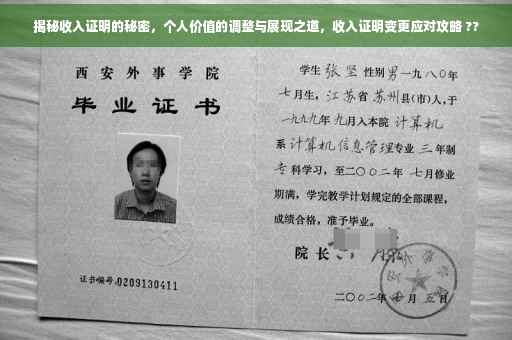 揭秘收入证明的秘密，个人价值的调整与展现之道，收入证明变更应对攻略 ??
西安外事学院
毕业证书
证书编号:0209130411
学生 张坚 性别男一九八〇年
七月生，江苏省 苏州县(市)人,于
一九九九年 九月入本院 计算机
系 计算机信息管理专业 三 年制
专科学习，至二〇〇二年 七月修业
期满，学完教学计划规定的全部课程，
成绩合格，准予毕业。
院长
二〇〇二年 七月 五日